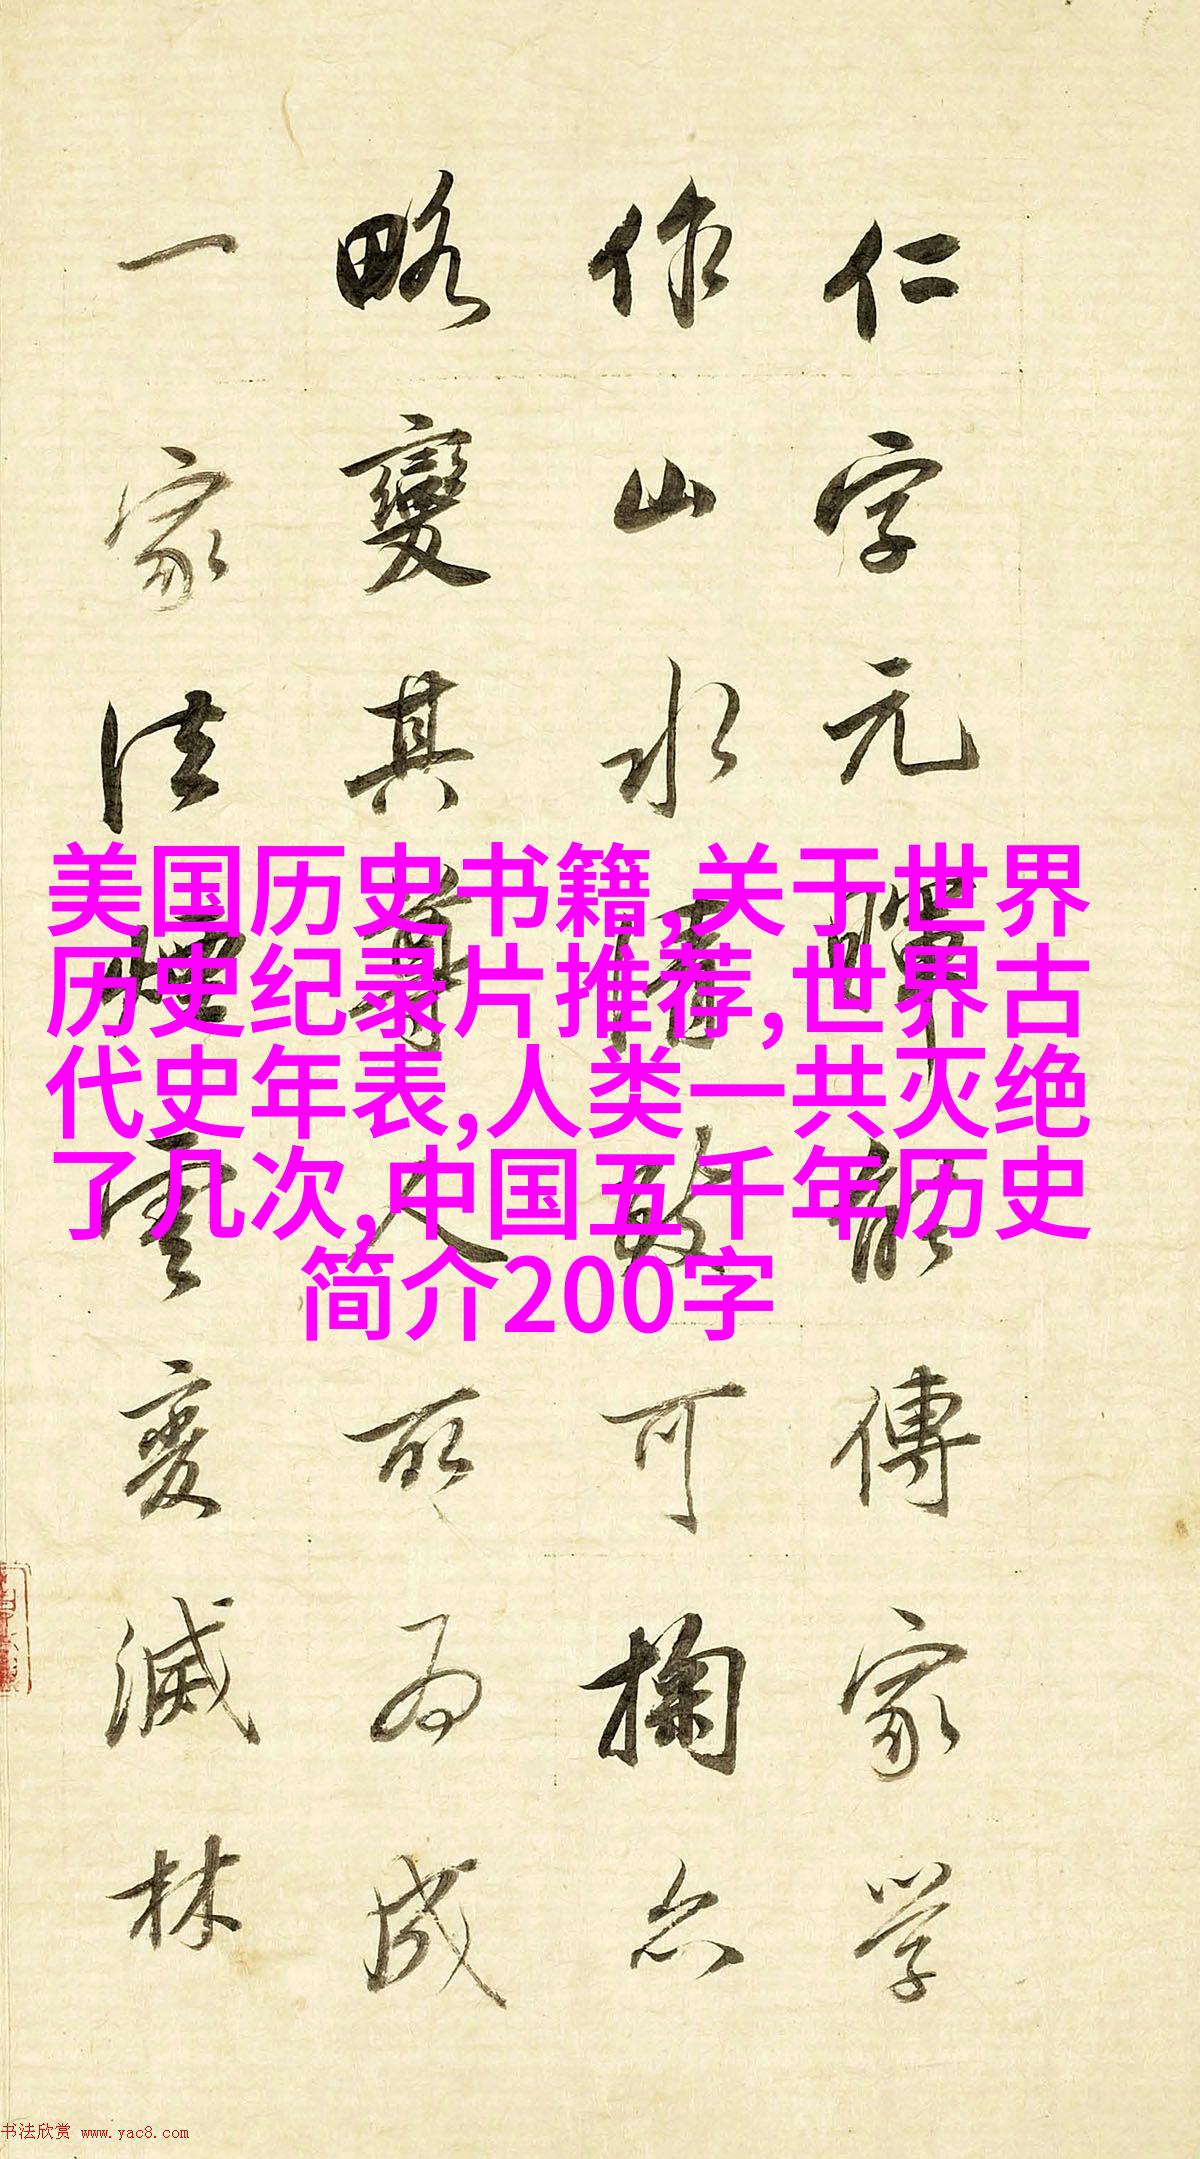 仁字元暉能傳家學
作山水清致可掬亦
略變其尊人所為成
一家法煙雲變滅林
美国历史书籍,关于世界
历史纪录片推荐,世界古
代史年表,人类一共灭绝
了几次,中国五千年历史
简介200字
书法欣赏 www.yac8.com